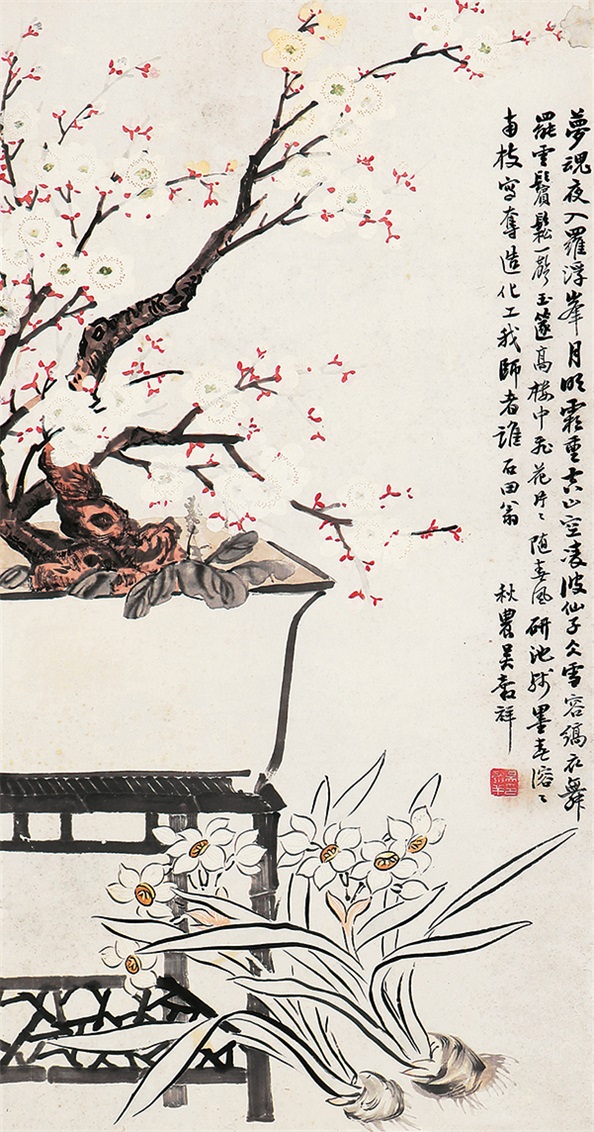 夢魂夜入羅浮峯月明霜重山空凌波仙子仌雪容縞衣舞
罷雲鬢鬆一聲玉篴高樓中飛花片〻隨春風研池殘墨春溶〻
南枝寫奪造化工我師者誰石田翁 秋農吳穀祥